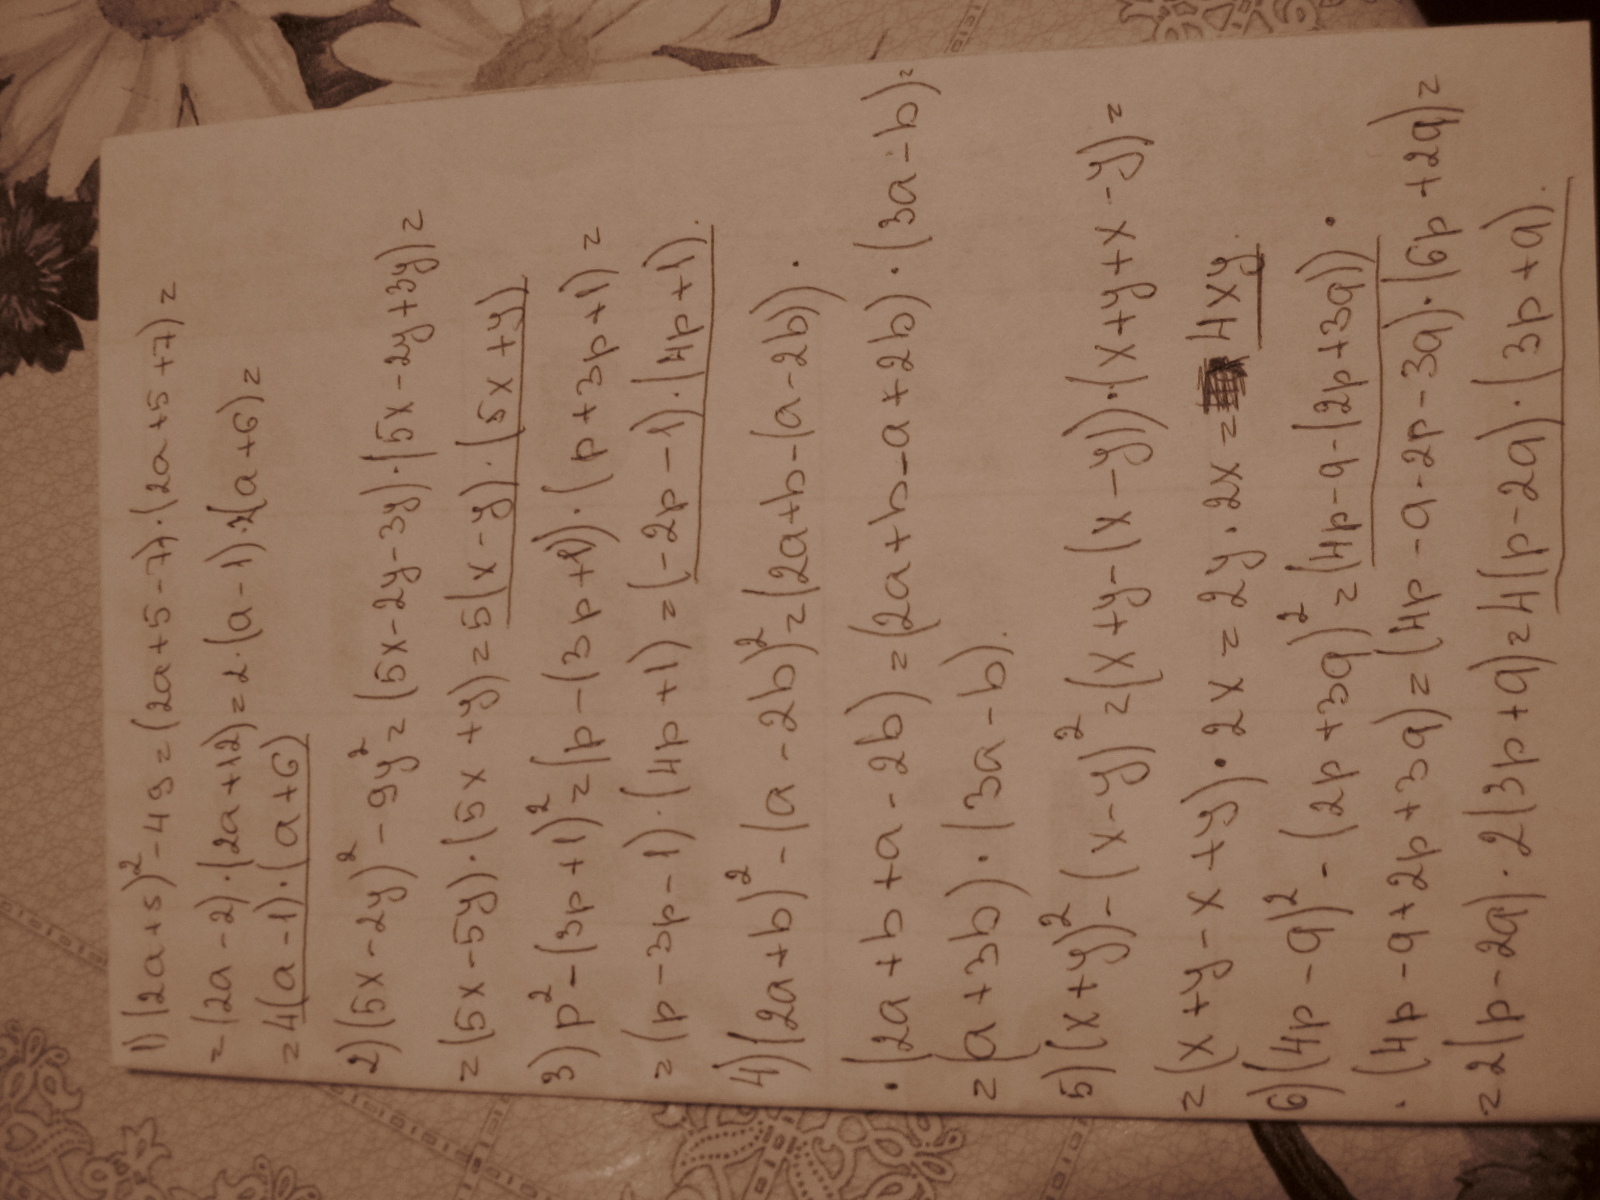 1) (2a+5)²-49=(2a+5-7)·(2a+5+7)=
=(2a-2)·(2a+12)=2·(a-1)·2(a+6)=
=4(a-1)·(a+6)
2) (5x-2y)²-9y²=(5x-2y-3y)·(5x-2y+3y)=
=(5x-5y)·(5x+y)=5(x-y)·(5x+y)
3) p²-(3p+1)²=(p-(3p+1))·(p+3p+1)=
=(p-3p-1)·(4p+1)=(-2p-1)·(4p+1).
4) (2a+b)²-(a-2b)²=(2a+b-(a-2b))·
·(2a+b+a-2b)=(2a+b-a+2b)·(3a-b)=
=(a+3b)·(3a-b).
5) (x+y)²-(x-y)²=(x+y-(x-y))·(x+y+x-y)=
=(x+y-x+y)·2x=2y·2x=4xy.
6) (4p-q)²-(2p+3q)²=(4p-q-(2p+3q))·
·(4p-q+2p+3q)=(4p-q-2p-3q)·(6p+2q)=
=2(p-2q)·2(3p+q)=4(p-2q)·(3p+q).